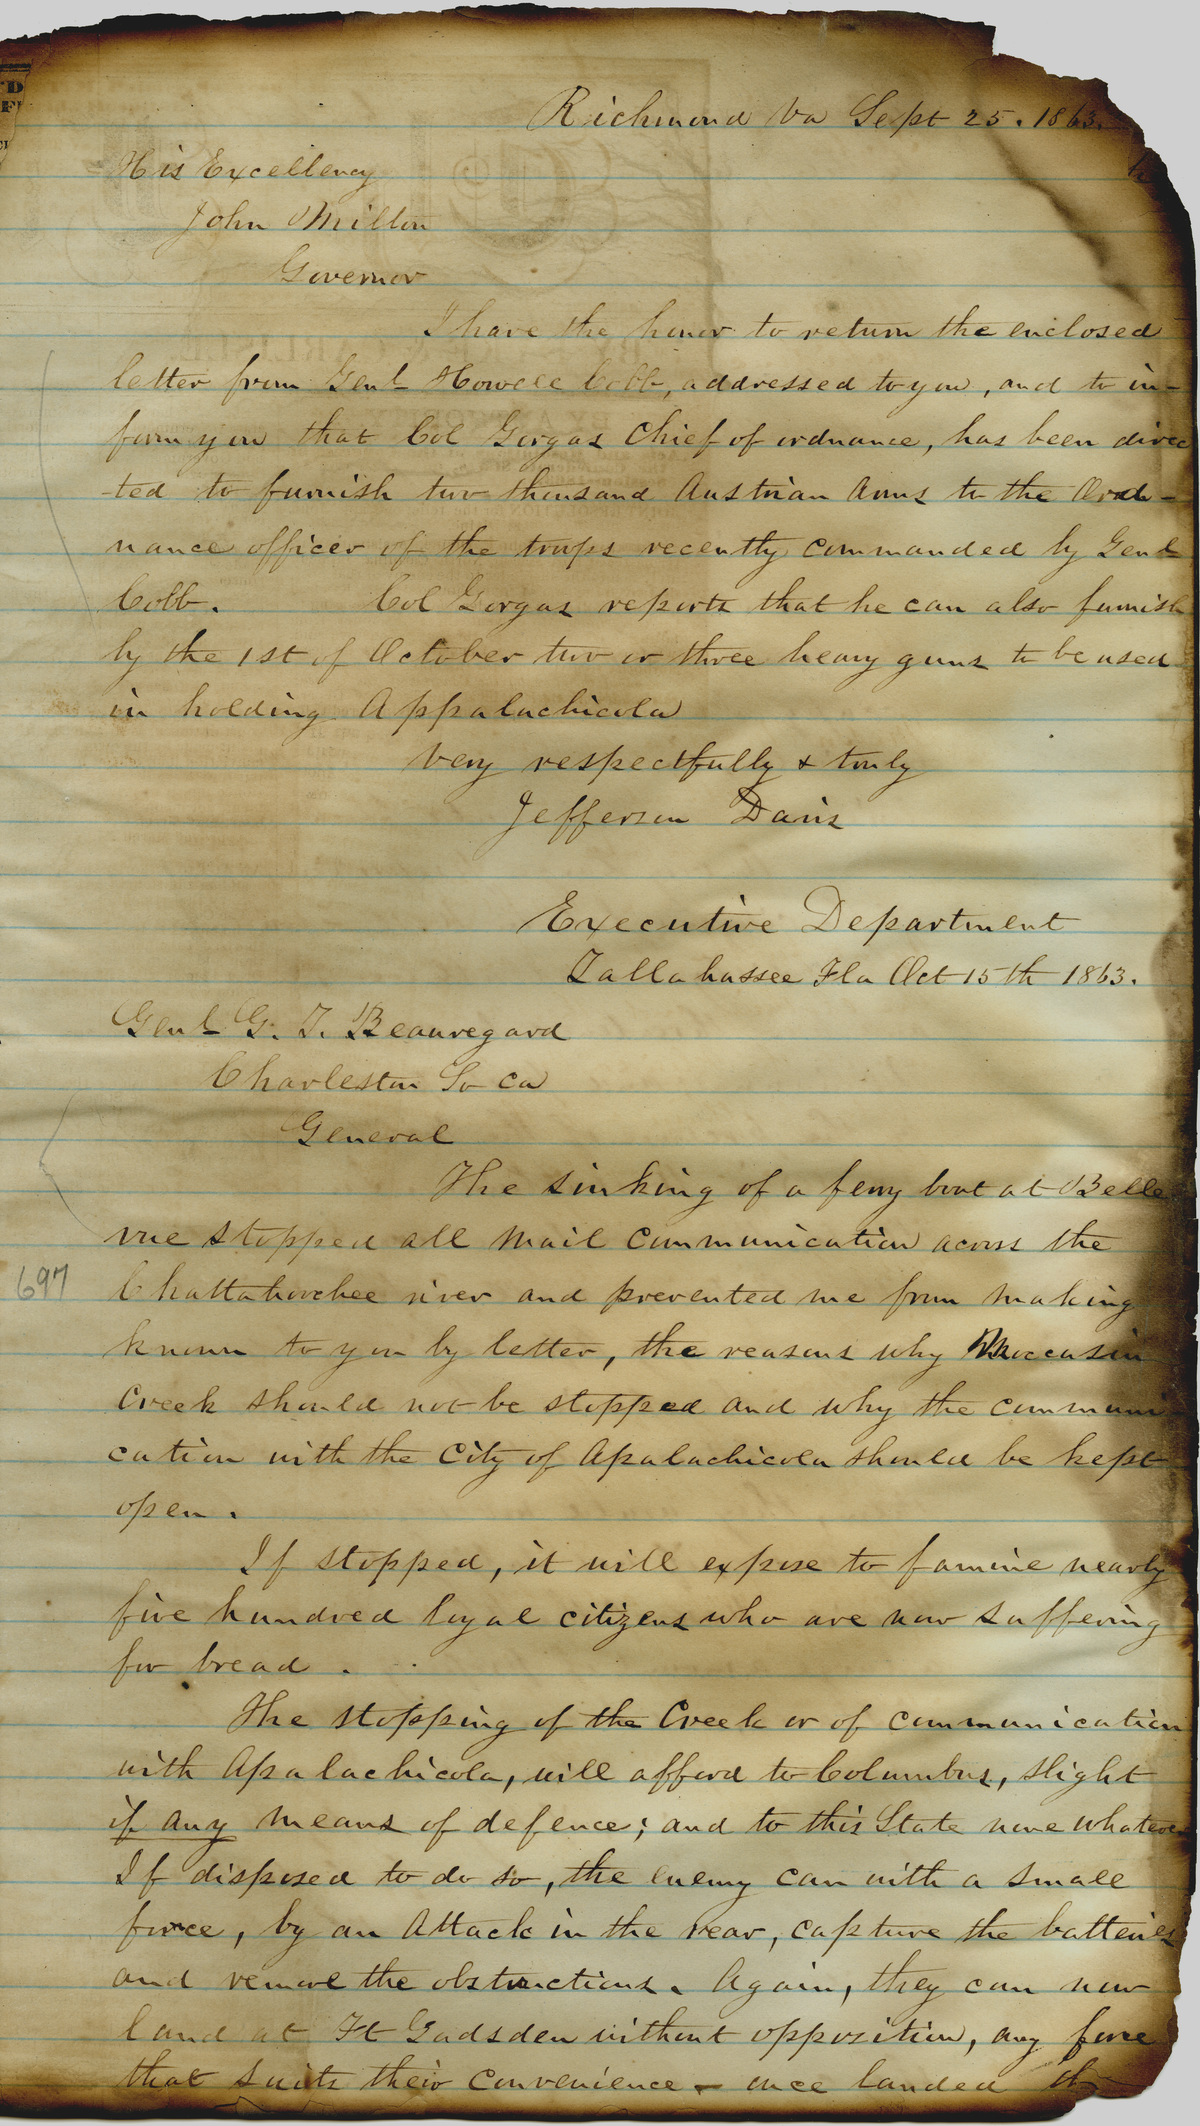 Richmond Va Sept 25. 1863.
His Excellency
John Milton
Governor
I have the honor to return the enclosed
letter from Genl Howell Cobb, addressed to you, and to in-
form you that Col Gorgas Chief of ordnance, has been direc
-ted to furnish two thousand Austrian Arms to the Ord-
nance officer of the troops recently commanded by Genl
Cobb. Col Gorgas reports that he can also furnish
by the 1st of October two or three heavy guns to be used
in holding Appalachicola
Very respectfully & truly
Jefferson Davis
Executive Department
Tallahassee Fla Oct 15th 1863.
Genl G. T. Beauregard
Charleston So Ca
General
The sinking of a ferry boat at Belle
vue stopped all mail communication across the
697
Chattahoochee river and prevented me from making
known to you by letter, the reasons why Moccasin
Creek should not be stopped and why the communi
cation with the City of Apalachicola should be kept
open.
If stopped, it will expose to famine nearly
five hundred loyal citizens who are now suffering
for bread.
The stopping of the Creek or of communication
with Apalachicola, will afford to Columbus, slight
if any means of defence; and to this State none whatever
If disposed to do so, the enemy can with a small
force, by an Attack in the rear, capture the batteries
and remove the obstructions. Again, they can now
land at Ft Gadsden without opposition, any force
that suits their convenience - once landed